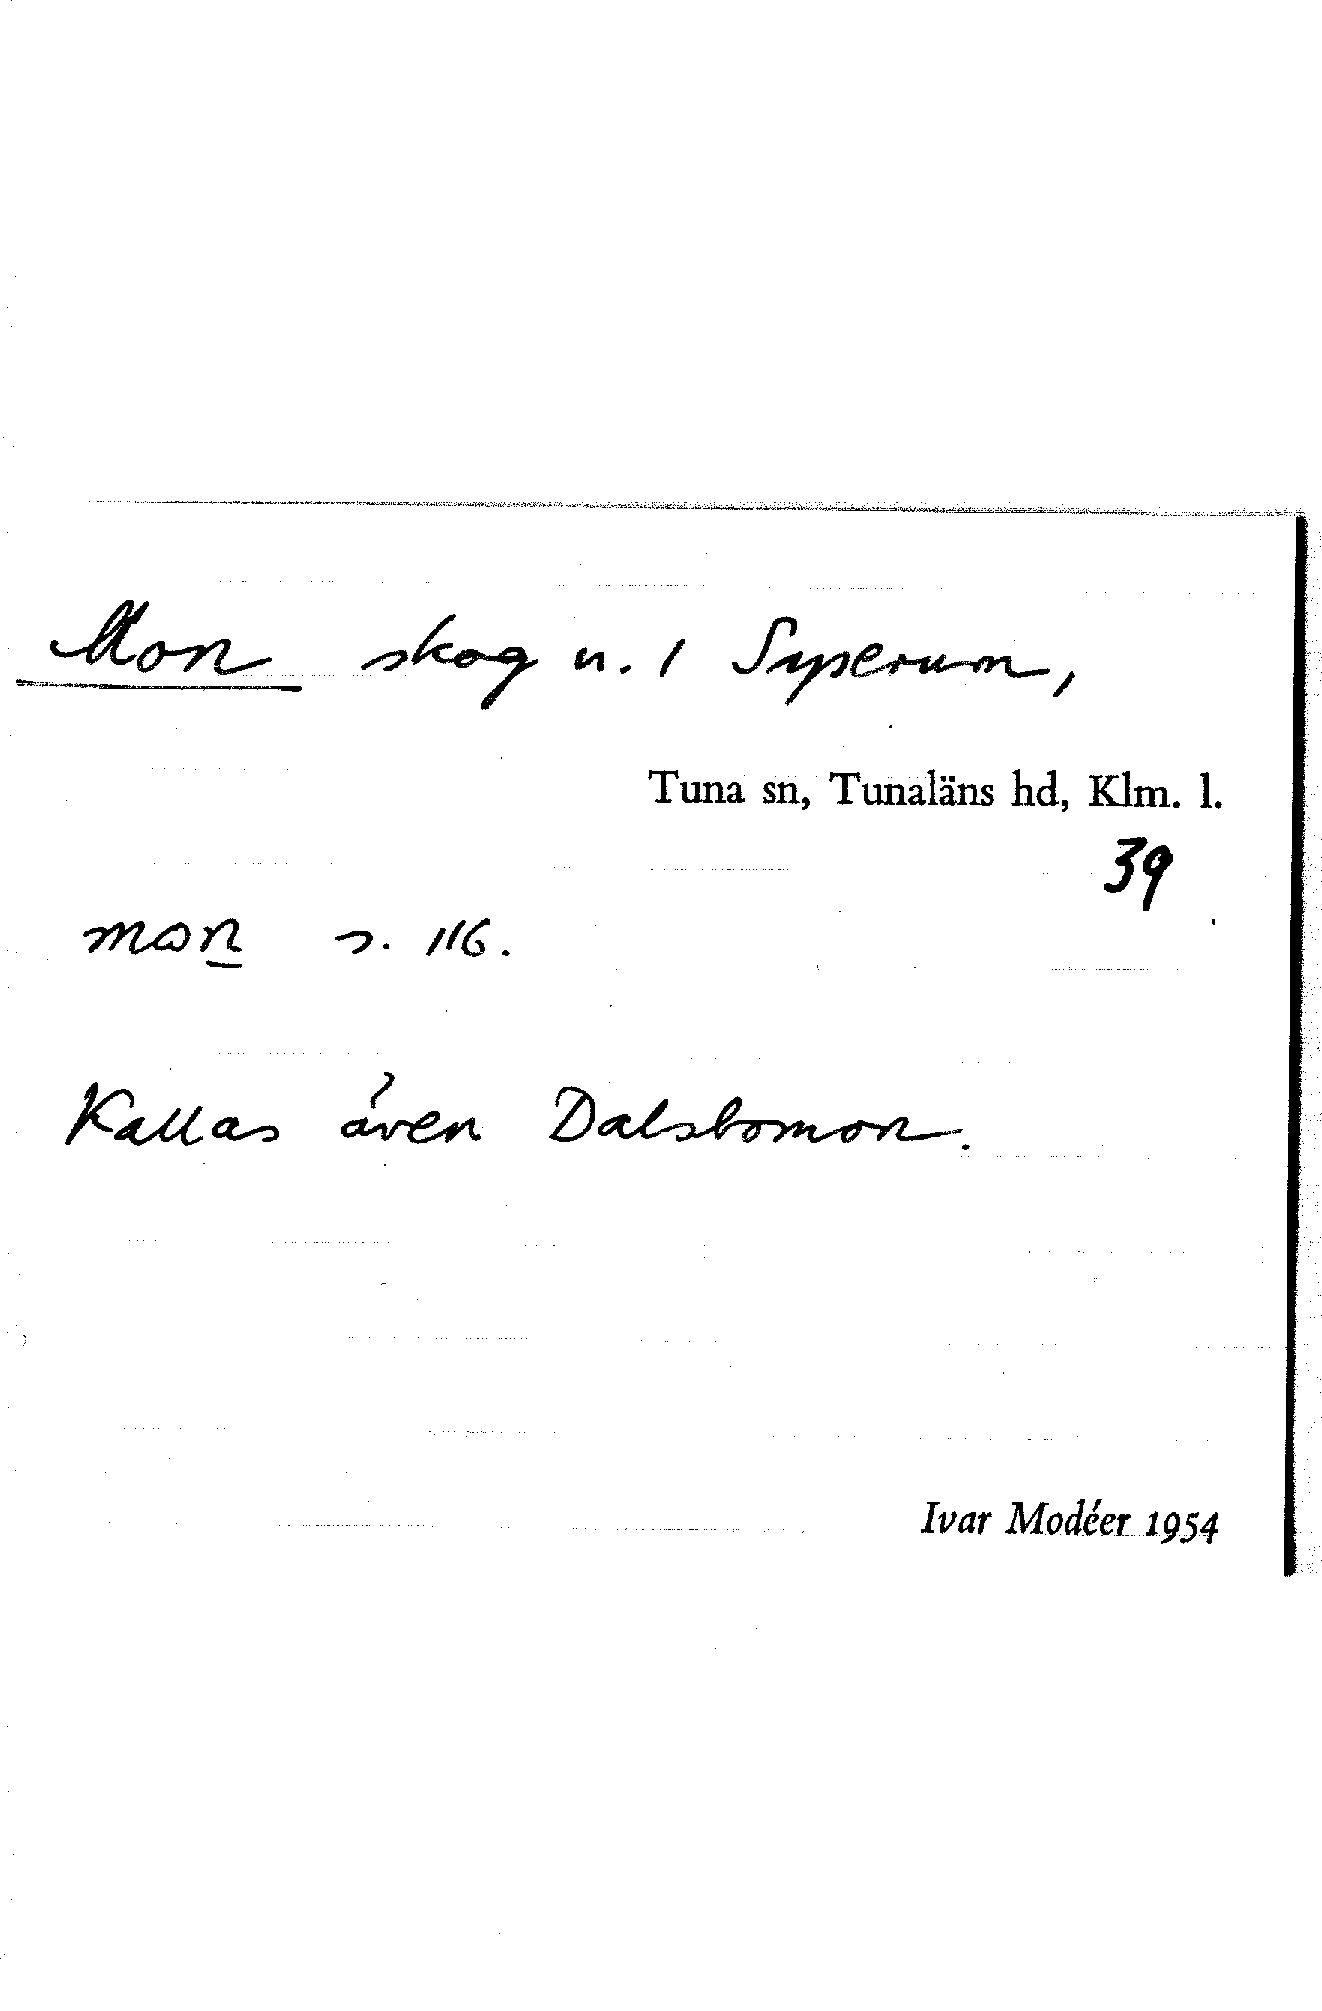 Mon skog u. / Syserum,
Tuna sn, Tunaläns hd, Klm. l.
39
mon s. 116.
Kallas även Dalsbomon.
Ivar Modéer 1954